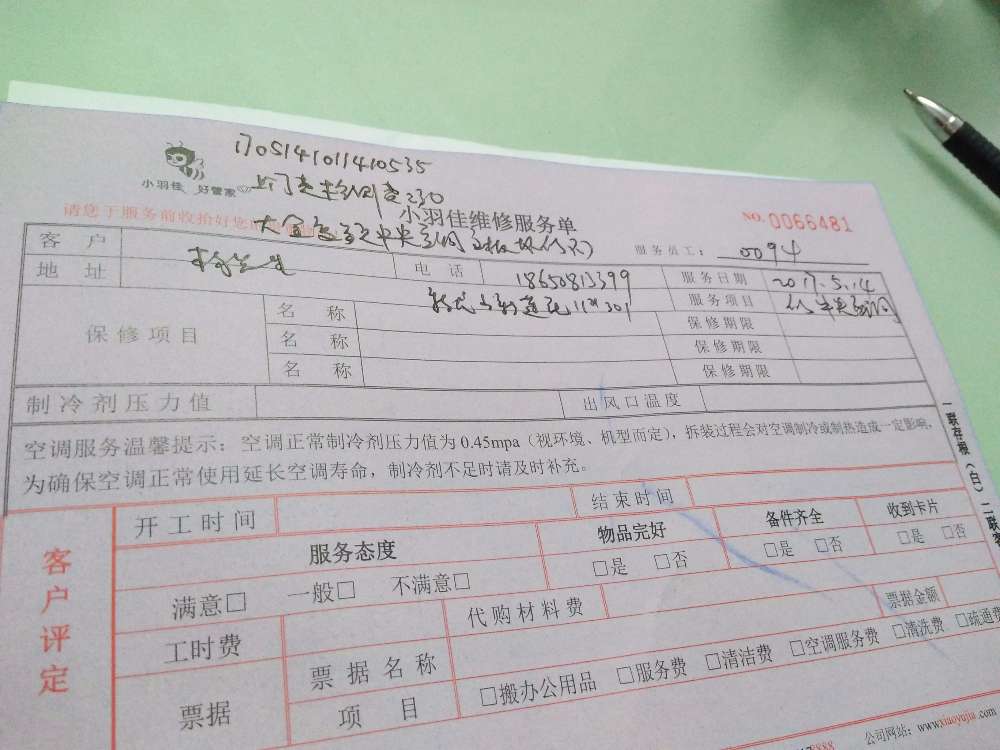 1705141011410535
小羽佳 好管家
小羽佳维修服务单
NO. 0066481
请您于服务前收拾好您
服务员工： 0094
客户 电话 18650813399 服务日期 2017.5.14
地址 301 服务项目
保修项目 名称 保修期限
名称 保修期限
名称 保修期限
制冷剂压力值 出风口温度
空调服务温馨提示：空调正常制冷剂压力值为0.45mpa（视环境、机型而定），拆装过程会对空调制冷或制热造成一定影响，
为确保空调正常使用延长空调寿命，制冷剂不足时请及时补充。
一联存根（白）二联
客户评定
开工时间 结束时间
服务态度 物品完好 备件齐全 收到卡片
满意□ 一般□ 不满意□ □是 □否 □是 □否 □是 □否
工时费 代购材料费 票据金额
票据 票据名称 □搬办公用品 □服务费 □清洁费 □空调服务费 □清洗费 □疏通费
项目
公司网站：www.xiaoyujia.com